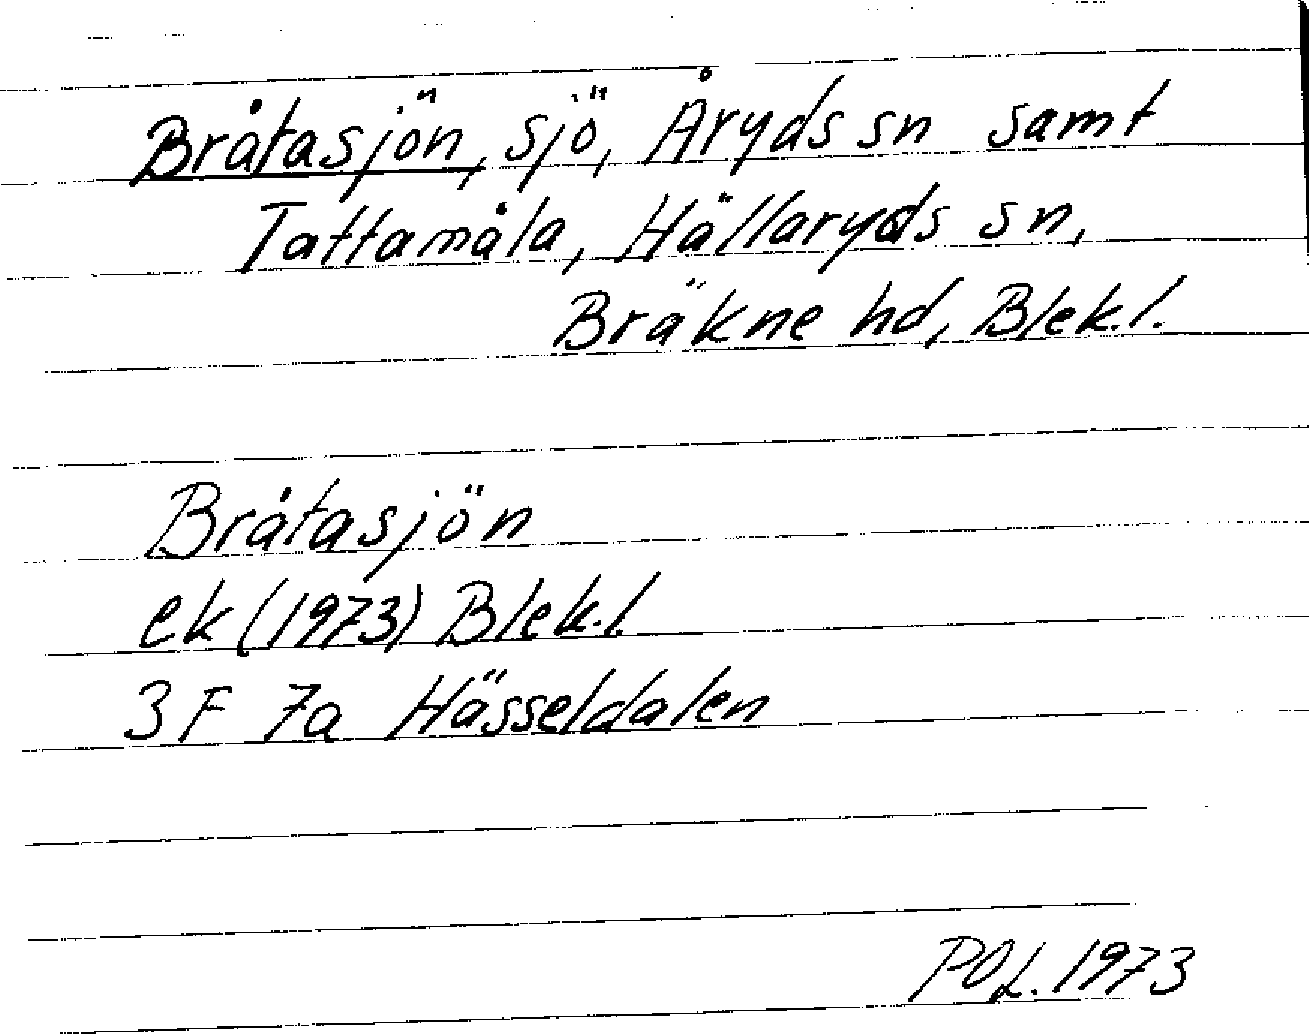 Bråtasjön, sjö, Åryds sn samt
Tattamåla, Hällaryds sn,
Bräkne hd, Blek.l.
Bråtasjön
ek (1973) Blek.l.
3F 7a Hässeldalen
POL. 1973